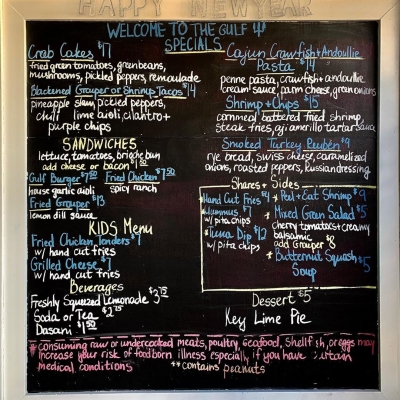 HAPPY NEW YEAR
WELCOME TO THE GULF
SPECIALS
Crab Cakes $7
fried green tomatoes, green beans,
mushrooms, pickled peppers, remoulade
Blackened Grouper or Shrimp Tacos $14
pineapple slaw, pickled peppers,
chili lime aioli, cilantro +
purple chips
SANDWICHES
lettuce, tomatoes, brioche bun
add cheese or bacon
Gulf Burger Fried Chicken $7.50
house garlic aioli spicy ranch
Fried Grouper $13
lemon dill sauce
KIDS Menu
Fried Chicken Tenders $7
w/ hand cut fries
Grilled Cheese $7
w/ hand cut fries
Beverages
Freshly Squeezed Lemonade
Soda or Tea
Dasani $1.50
Cajun Crawfish + Andouille
Pasta $14
penne pasta, crawfish + andouille
cream sauce, parm cheese, green onions
Shrimp + Chips $15
cornmeal battered fried shrimp,
steak fries, aji amarillo tartar sauce
Smoked Turkey Reuben $9
rye bread, swiss cheese, caramelized
onions, roasted peppers, russian dressing
Shares + Sides
Hand Cut Fries $4
Hummus $7
w/ pita chips
*Tuna Dip $12
w/ pita chips
*Peel + Eat Shrimp $9
*Mixed Green Salad $5
cherry tomatoes + creamy
balsamic
add Grouper $8
*Butternut Squash $5
Soup
Dessert $5
Key Lime Pie
*consuming raw or undercooked meats, poultry, seafood, shellfish, or eggs may
increase your risk of foodborn illness especially if you have certain
medical conditions **contains peanuts